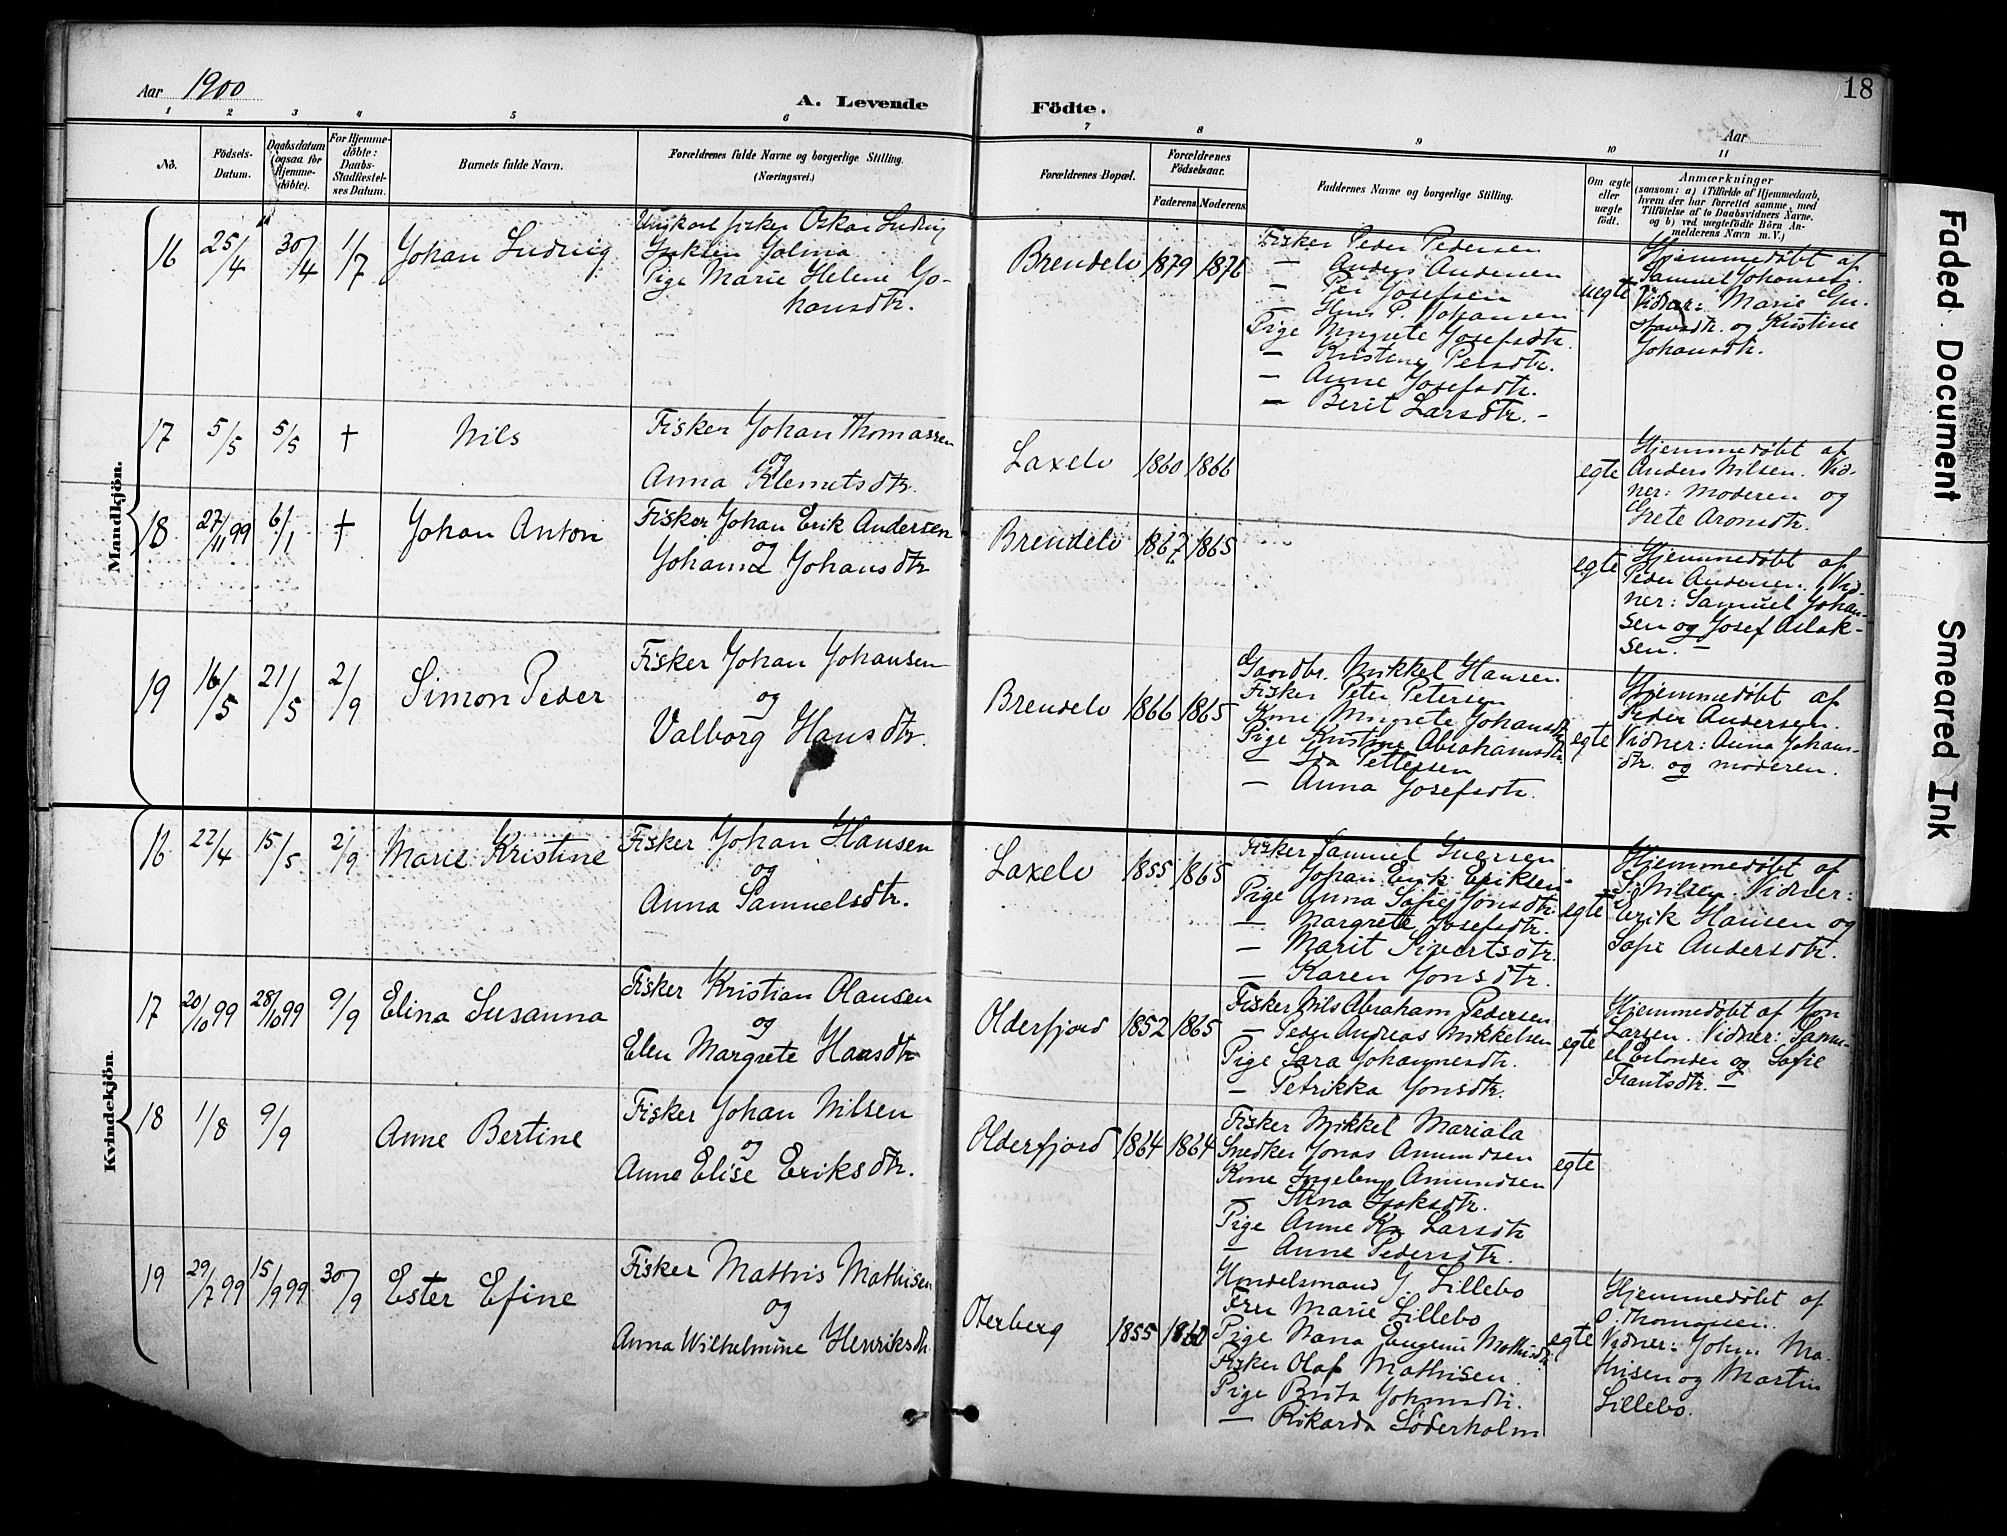 18
Aar 1900
A. Levende Födte.
Aar
1 2 3 4 5 6 7 8 9 10 11
No.
Födsels-
Datum.
Daabsdatum
(ogsaa for
Hjemme-
døbte).
For Hjemme-
døbte:
Daabs-
Stadfæstel-
ses Datum.
Barnets fulde Navn.
Forældrenes fulde Navne og borgerlige Stilling.
(Næringsvei.)
Forældrenes Bopæl.
Forældrenes
Födselsaar.
Faderens. Moderens.
Faddernes Navne og borgerlige Stilling.
Om ægte
eller
uægte
født.
Anmærkninger
(saasom: a) i Tilfælde af Hjemmedaab,
hvem der har forrettet samme, med
Tilföielse af to Daabsvidners Navne.
og b) ved uægtefödte Börn An-
melderens Navn m. V.)
Mandkjön.
16 25/4 30/4 1/7 Johan Ludvig
Ungkarl fisker Oskar Ludvig
Isaksen Jolma
Pige Marie Helene Jo-
hansdtr.
Brendelv 1879 1876
Fisker Peder Pedersen
— Anders Andersen
— Per Josefsen
— Hans P. Johansen
Pige Margrete Josefsdtr.
— Kristine Persdtr.
— Anne Josefsdtr.
— Berit Larsdtr. –
uegte
Hjemmedøbt af
Samuel Johansen.
Vidner: Marie Gu-
stavsdtr. og Kristine
Johansdtr.
17 5/5 5/5 † Nils
Fisker Johan Thomassen
og
Anna Klemetsdtr.
Laxelv 1860 1866
egte
Hjemmedøbt af
Anders Nilsen. Vid-
ner: Moderen og
Grete Aronsdtr.
18 27/11 99 6/1 † Johan Anton
Fisker Johan Erik Andersen
og
Johanna Johansdtr
Brendelv 1867 1865
egte
Hjemmedøbt af
Peder Andersen. Vid-
ner: Samuel Johan-
sen og Josef Aslak-
sen. –
19 16/5 21/5 2/9 Simon Peder
Fisker Johan Johansen
og
Valborg Hansdtr.
Brendelv 1866 1865
Gaardbr. Mikkel Hansen
Fisker Peter Petersen
Kone Margrete Johansdtr
Pige Kristine Abrahamsdtr.
— Ida Pettersen
— Anna Josefsdtr.
egte
Hjemmedøbt af
Peder Andersen.
Vidner: Anna Johans-
dtr. og moderen.
Kvindekjön.
16 22/4 15/5 2/9 Marie Kristine
Fisker Johan Hansen
og
Anna Samuelsdtr.
Laxelv 1855 1865
Fisker Samuel Iversen
Johan Erik Eriksen
Pige Anna Sofie Jonsdtr.
— Margrete Josefsdtr.
— Marit Sivertsdtr.
— Karen Jonsdtr.
egte
Hjemmedøbt af
S. Nilsen. Vidner:
Erik Hansen og
Sofie Andersdtr.
17 20/10 99 28/10 99 9/9 Elina Susanna
Fisker Kristian Olausen
og
Elen Margrete Hansdtr
Olderfjord 1852 1865
Fisker Nils Abraham Pedersen
— Peder Andreas Mikkelsen
Pige Sara Johannesdtr.
— Petrikka Jonsdtr.
egte
Hjemmedøbt af Jon
Larsen. Vidner: Samu-
el Erlander og Sofie
Frantsdtr. –
18 1/8 9/9 Anne Bertine
Fisker Johan Nilsen
og
Anne Elise Eriksdtr.
Olderfjord 1864 1864
Fisker Mikkel Mariala
Snedker Jonas Amundsen
Kone Ingeborg Amundsen
— Stina Isaksdtr.
Pige Anne Kr. Larsdtr
— Anne Pedersdtr.
egte
19 29/7 99 15/9 99 30/9 Ester Efine
Fisker Mathis Mathisen
og
Anna Wilhelmine Henriksdtr.
Oterberg 1855
Handelsmand J. Lillebo
Fru Marie Lillebo
Pige Nana Eugenie Mathisdtr
Fisker Olaf Mathisen.
Pige Brita Johansdtr.
— Rikarda Söderholm
egte
Hjemmedøbt af
O. Thomassen.
Vidner: John Ma-
thisen og Martin
Lillebo.
Faded Document
Smeared Ink